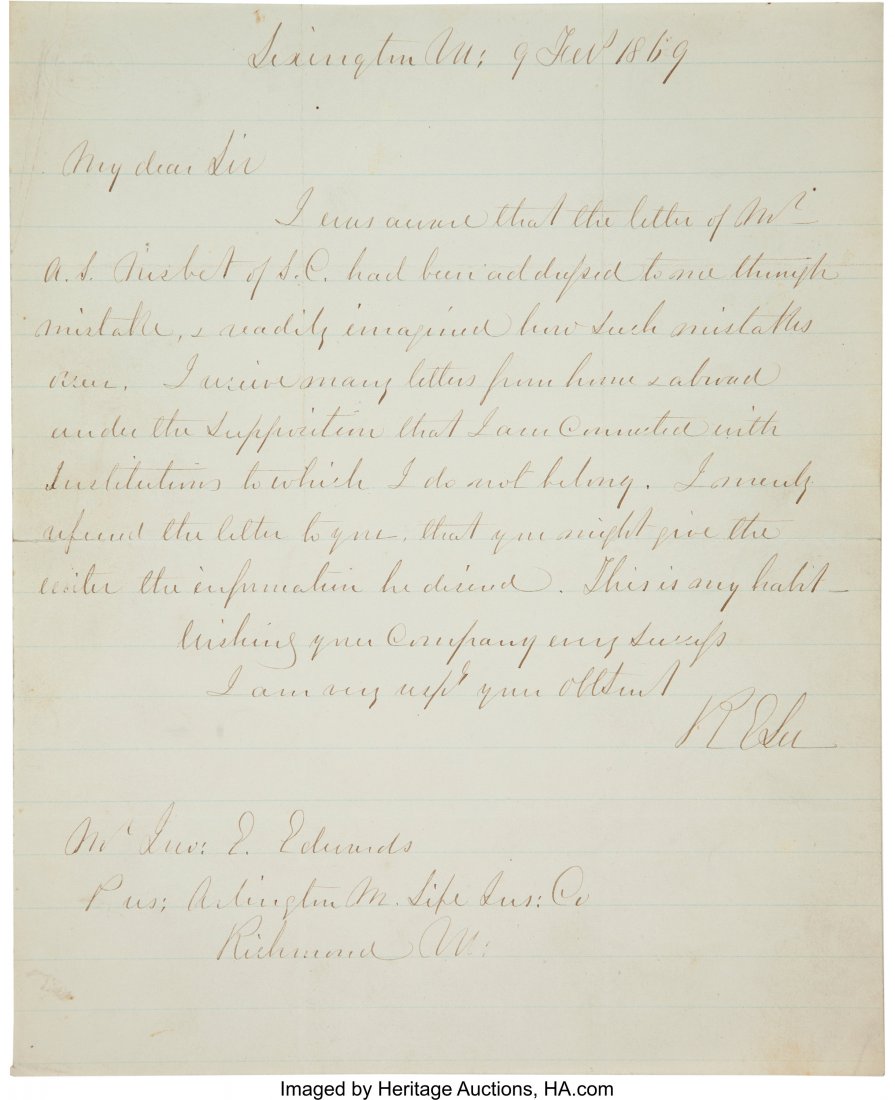 Lexington Va: 9 Feb 1869
My dear Sir
I was aware that the letter of Mr
A. S. Nisbet of S.C. had been addressed to me through
mistake, & readily imagined how such mistakes
occur. I receive many letters from home & abroad
under the supposition that I am connected with
Institutions to which I do not belong. I merely
referred the letter to you, that you might give the
writer the information he desired. This is my habit -
Wishing your Company every success
I am very respy your obtservt
R E Lee
Mr Jno: E. Edwards
Pres: Arlington M. Life Ins: Co
Richmond Va:
Imaged by Heritage Auctions, HA.com